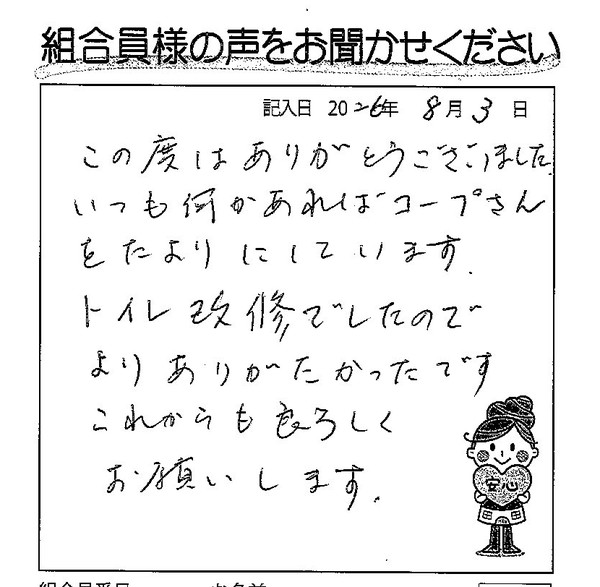 組合員様の声をお聞かせください
記入日 2026年 8月 3日
この度はありがとうございました
いつも何かあればコープさん
をたよりにしています.
トイレ改修でしたので
よりありがたかったです
これからも良ろしく
お願いします.
安心